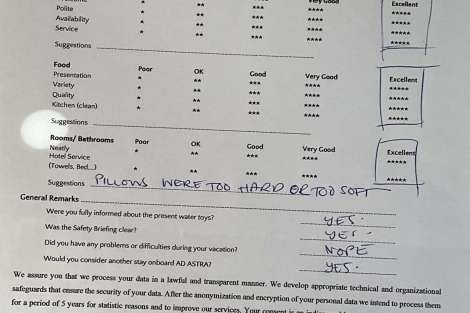 Very Good Excellent
Polite * ** *** **** *****
Availability * ** *** **** *****
Service * ** *** **** *****
Suggestions
Food Poor OK Good Very Good Excellent
Presentation * ** *** **** *****
Variety * ** *** **** *****
Quality * ** *** **** *****
Kitchen (clean) * ** *** **** *****
Suggestions
Rooms/ Bathrooms Poor OK Good Very Good Excellent
Neatly * ** *** **** *****
Hotel Service
(Towels, Bed...) * ** *** **** *****
Suggestions PILLOWS WERE TOO HARD OR TOO SOFT
General Remarks
Were you fully informed about the present water toys? YES.
Was the Safety Briefing clear? YES.
Did you have any problems or difficulties during your vacation? NOPE
Would you consider another stay onboard AD ASTRA? YES.
We assure you that we process your data in a lawful and transparent manner. We develop appropriate technical and organizational
safeguards that ensure the security of your data. After the anonymization and encryption of your personal data we intend to process them
for a period of 5 years for statistic reasons and to improve our services. Your consent is